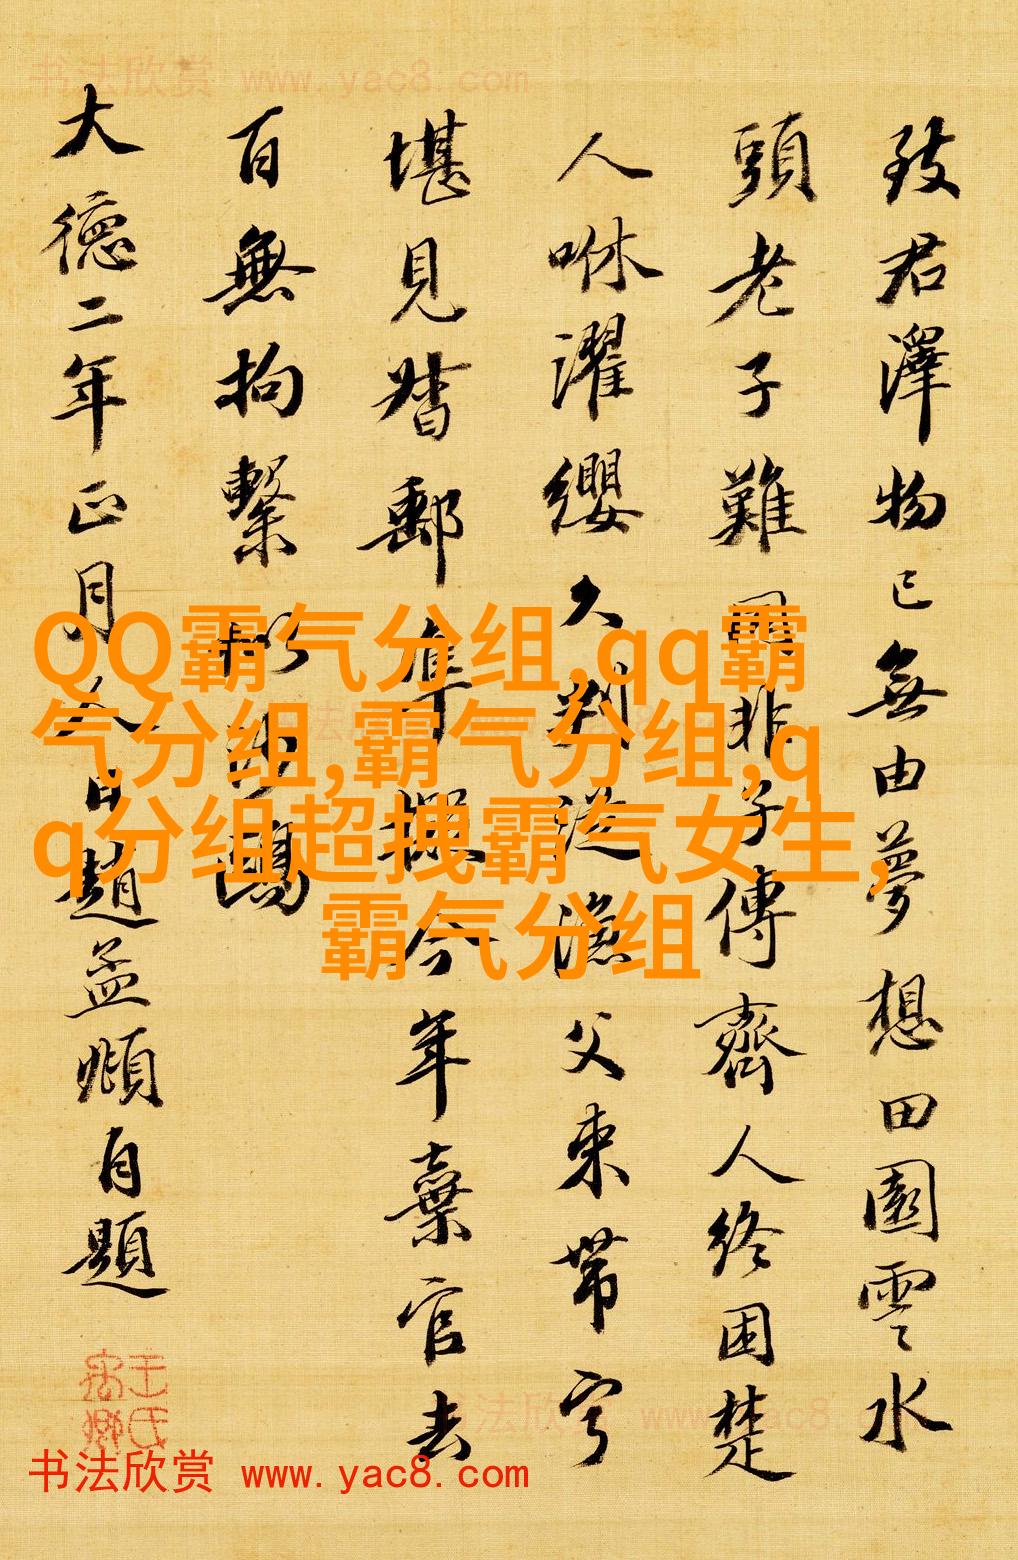 书法欣赏 www.yac8.com
致君澤物已無由夢想田園雲水
頭老子難同非子傳齊人終困楚
人咻濯纓久判從漁父束帶寧
堪見督郵隼擬今年棄官去
百無拘繫似沙鷗
大德二年正月人日趙孟頫自題
QQ霸气分组,qq霸
气分组,霸气分组,q
q分组超拽霸气女生,
霸气分组
书法欣赏 www.yac8.com